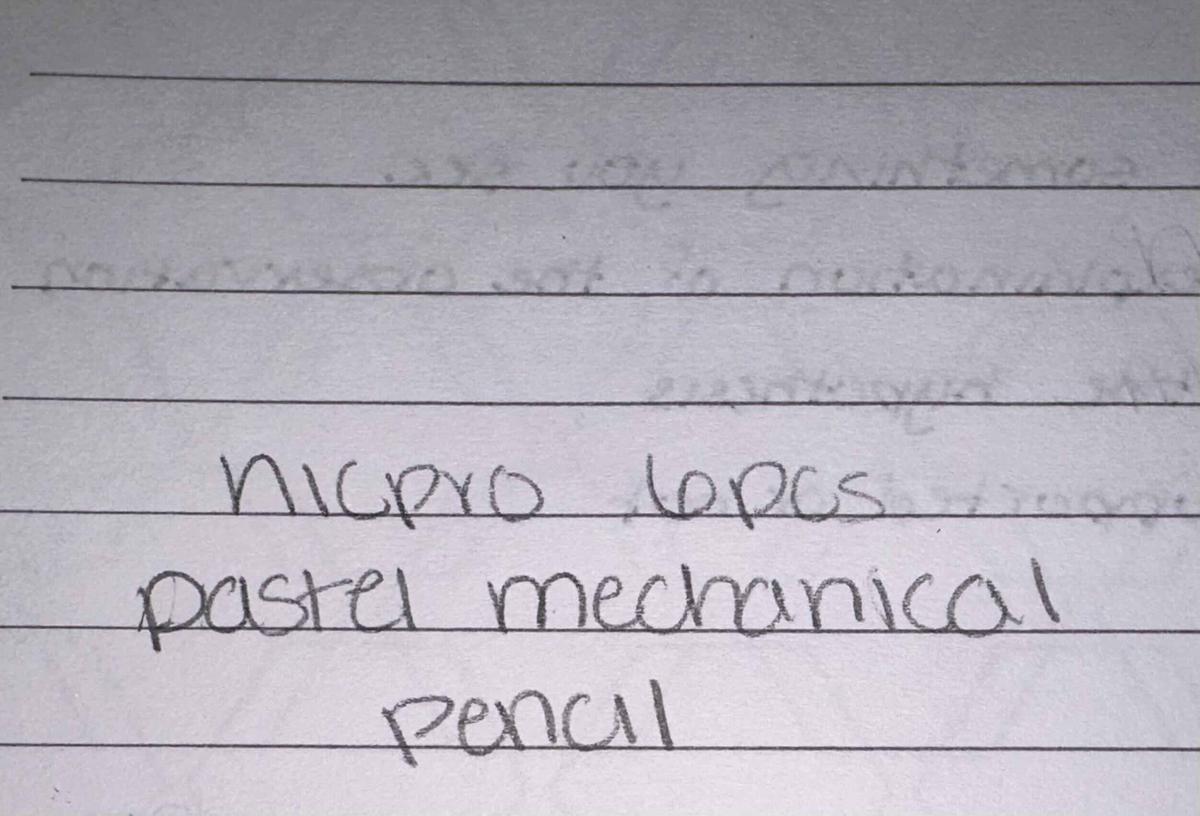 nicpro 6pcs
pastel mechanical
pencil